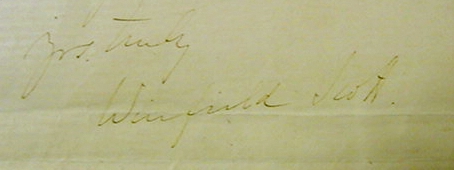 yrs. truly
Winfield Scott.